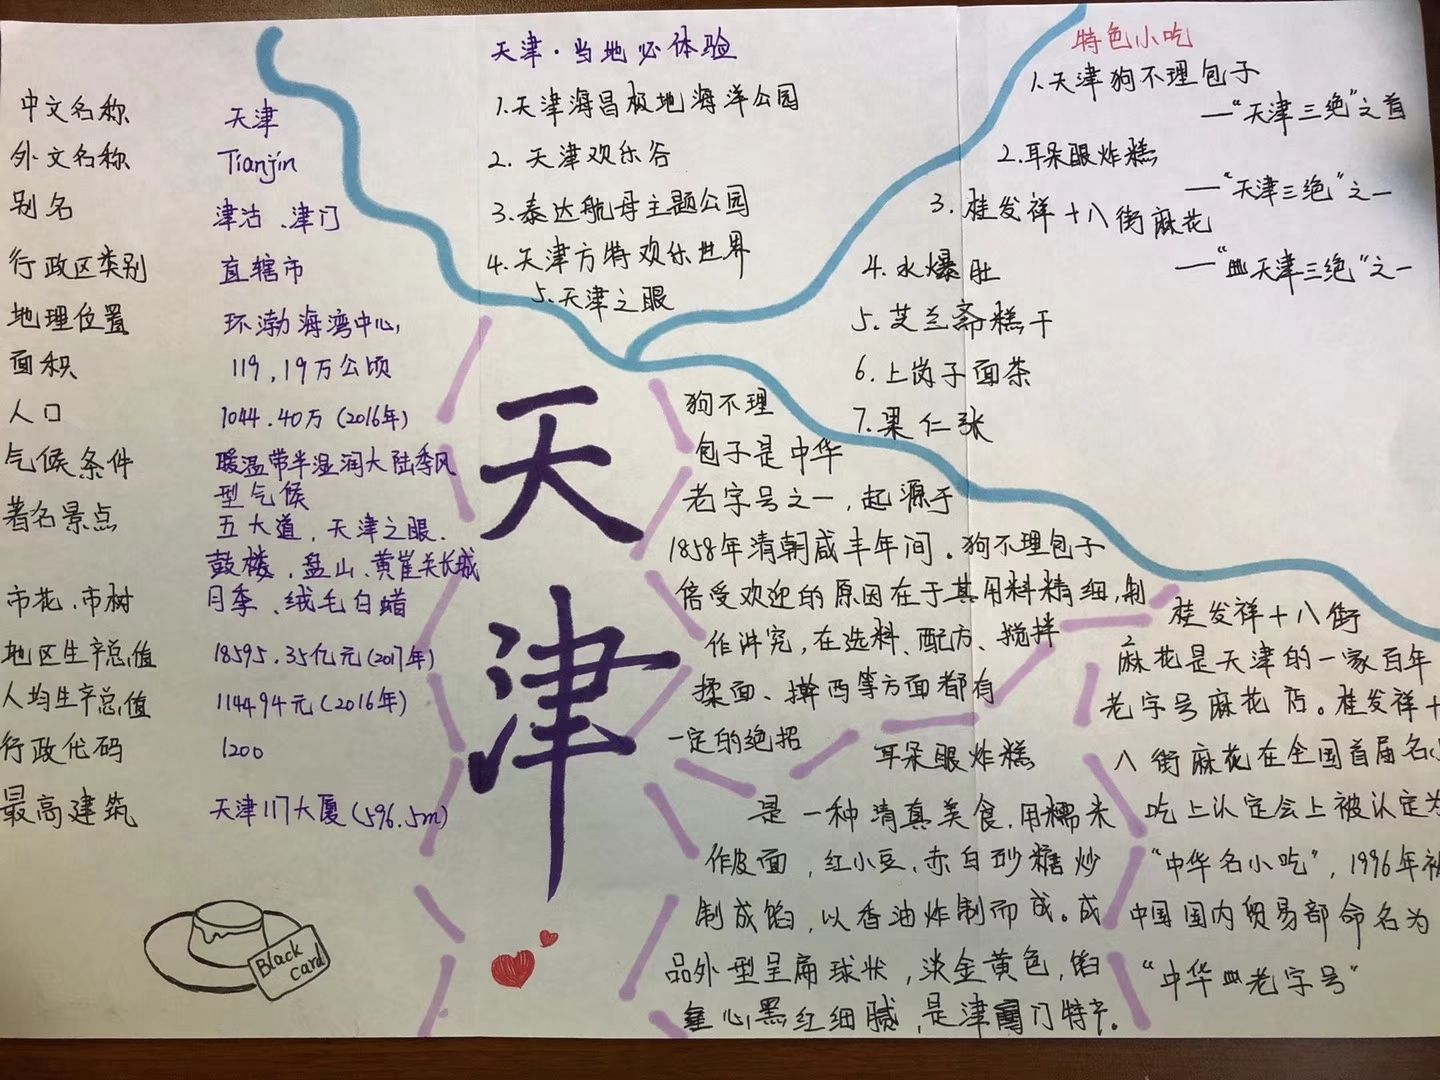 中文名称 天津
外文名称 Tianjin
别名 津沽、津门
行政区类别 直辖市
地理位置 环渤海湾中心,
面积 119.19万公顷
人口 1044.40万(2016年)
气候条件 暖温带半湿润大陆季风
型气候
著名景点 五大道,天津之眼.
鼓楼、盘山、黄崖关长城
市花、市树 月季、绒毛白蜡
地区生产总值 18595.35亿元(2017年)
人均生产总值 114494元(2016年)
行政代码 1200
最高建筑 天津117大厦(596.5m)
Black
card
天津·当地必体验
1.天津海昌极地海洋公园
2.天津欢乐谷
3.泰达航母主题公园
4.天津方特欢乐世界
5.天津之眼
特色小吃
1.天津狗不理包子
—“天津三绝”之首
2.耳朵眼炸糕
—“天津三绝”之一
3.桂发祥十八街麻花
—“天津三绝”之一
4.水爆肚
5.芝兰斋糕干
6.上岗子面茶
7.果仁张
天
津
狗不理
包子是中华
老字号之一,起源于
1858年清朝咸丰年间。狗不理包子
倍受欢迎的原因在于其用料精细,制
作讲究,在选料、配方、搅拌
揉面、擀面等方面都有
一定的绝招
耳朵眼炸糕
是一种清真美食,用糯米
作皮面,红小豆、赤白砂糖炒
制成馅,以香油炸制而成。成
品外型呈扁球状,淡金黄色,馅
心黑红细腻,是津门特产。
桂发祥十八街
麻花是天津的一家百年
老字号麻花店。桂发祥十
八街麻花在全国首届名小
吃上认定会上被认定为
“中华名小吃”,1996年被
中国国内贸易部命名为
“中华老字号”